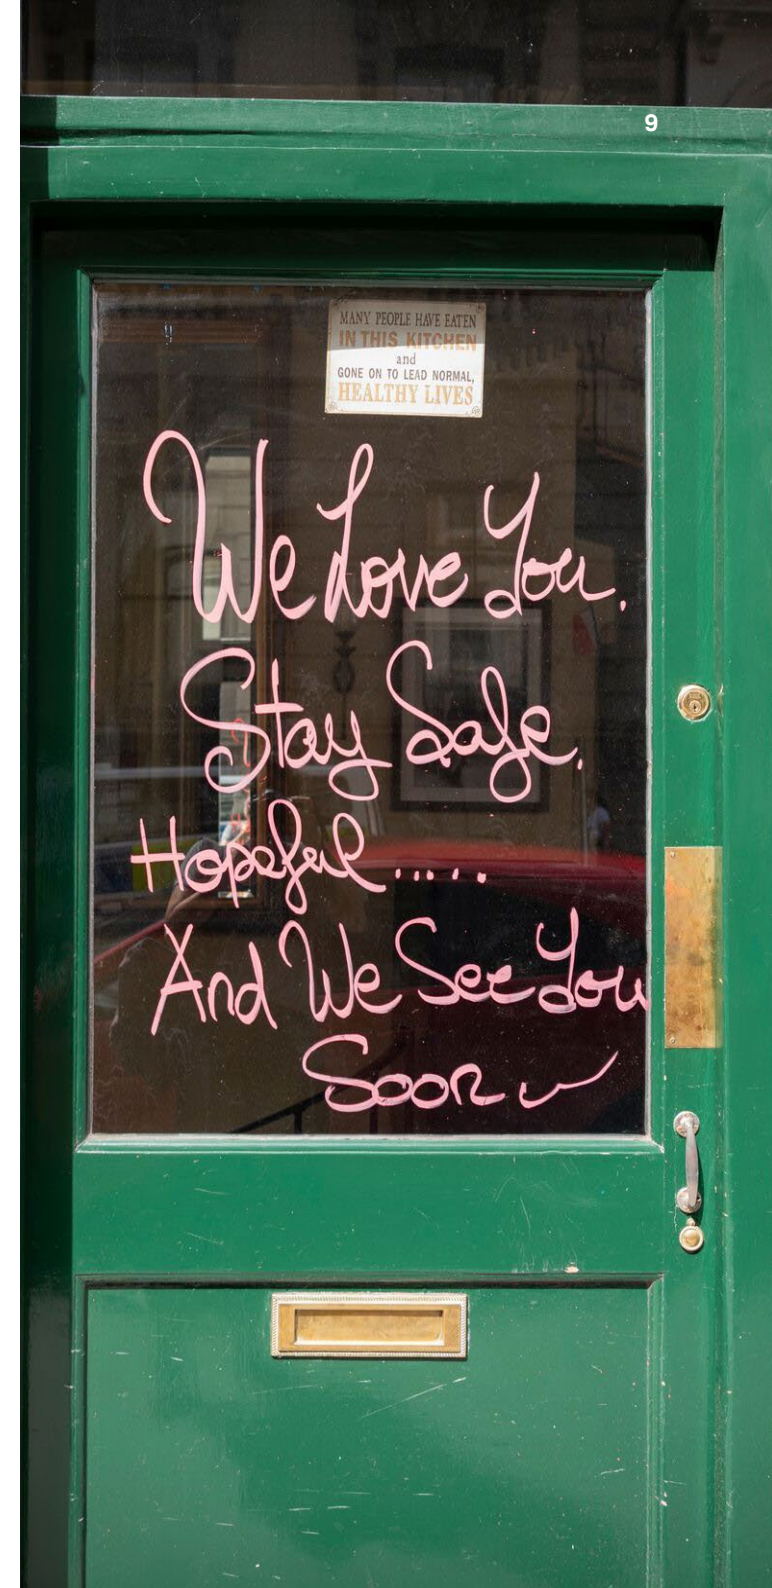 9
MANY PEOPLE HAVE EATEN
IN THIS KITCHEN
and
GONE ON TO LEAD NORMAL,
HEALTHY LIVES
We Love You.
Stay Safe.
Hopeful.....
And We See You
Soon